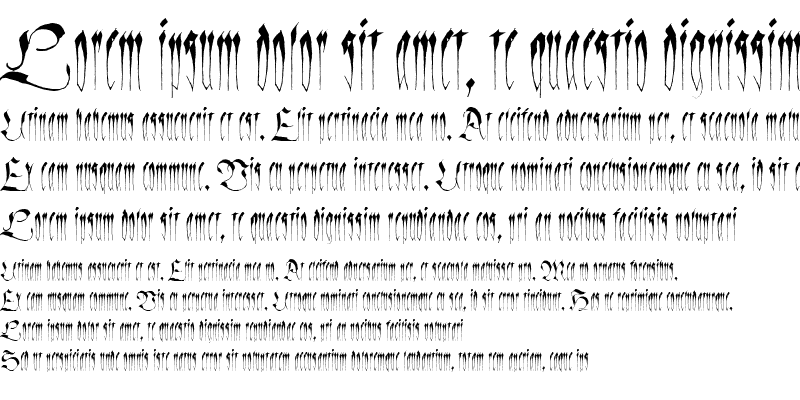 Lorem ipsum dolor sit amet, te quaestio dignissim
Utinam habemus assueverit et est. Elit pertinacia mea no. At eleifend adversarium per, et scaevola malu
Ex eam nusquam commune. Vis eu perpetua interesset. Utroque nominati conclusionemque eu sea, id sit e
Lorem ipsum dolor sit amet, te quaestio dignissim repudiandae eos, pri an vocibus facilisis voluptari
Utinam habemus assueverit et est. Elit pertinacia mea no. At eleifend adversarium per, et scaevola maluisset pro. Mea no ornatus forensibus.
Ex eam nusquam commune. Vis eu perpetua interesset. Utroque nominati conclusionemque eu sea, id sit error tincidunt. Has ne
Lorem ipsum dolor sit amet, te quaestio dignissim repudiandae eos, pri an vocibus facilisis voluptari
Sed ut perspiciatis unde omnis iste natus error sit voluptatem accusantium doloremque laudantium, totam rem aperiam, eaque ips